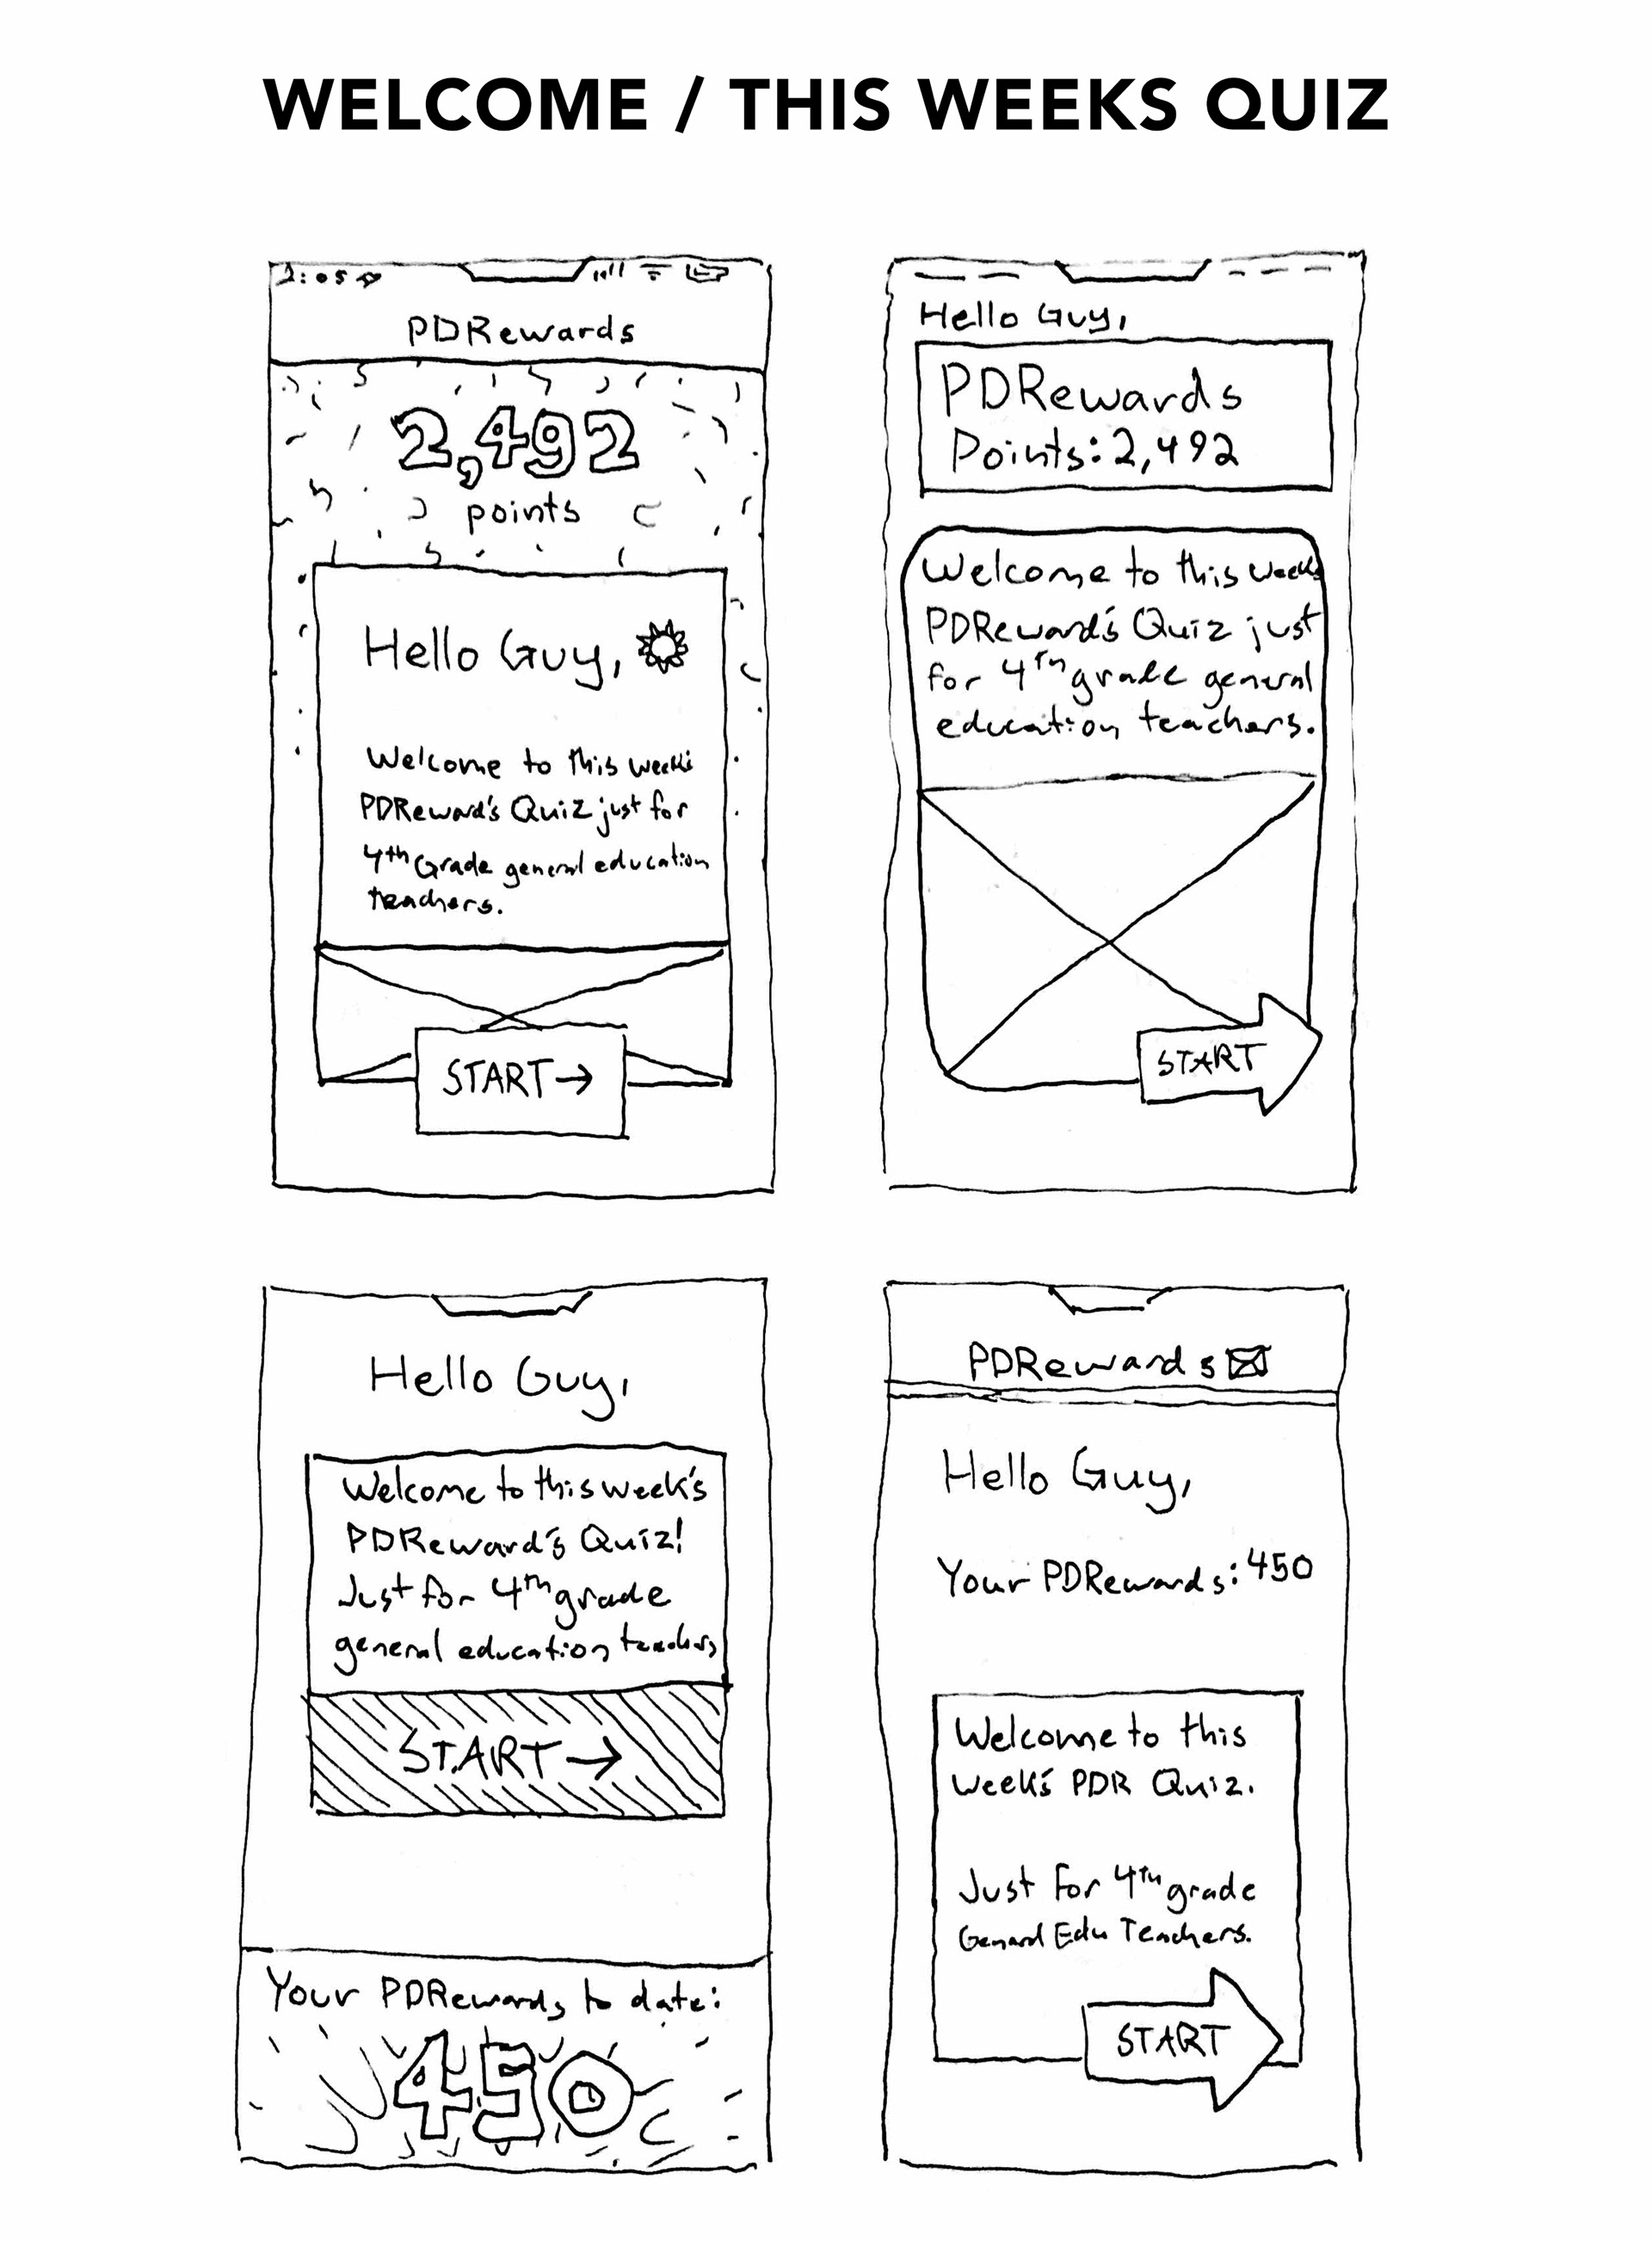 WELCOME / THIS WEEKS QUIZ
2:05
PDRewards
2,492
points
Hello Guy,
Welcome to this week's
PDReward's Quiz just for
4th Grade general education
teachers.
START→
Hello Guy,
PDRewards
Points: 2,492
Welcome to this weeks
PDReward's Quiz just
for 4th grade general
education teachers.
START
Hello Guy,
Welcome to this week's
PDReward's Quiz!
Just for 4th grade
general education teachers
START→
Your PDRewards to date:
450
PDRewards
Hello Guy,
Your PDRewards: 450
Welcome to this
week's PDR Quiz.
Just for 4th grade
General Edu Teachers.
START